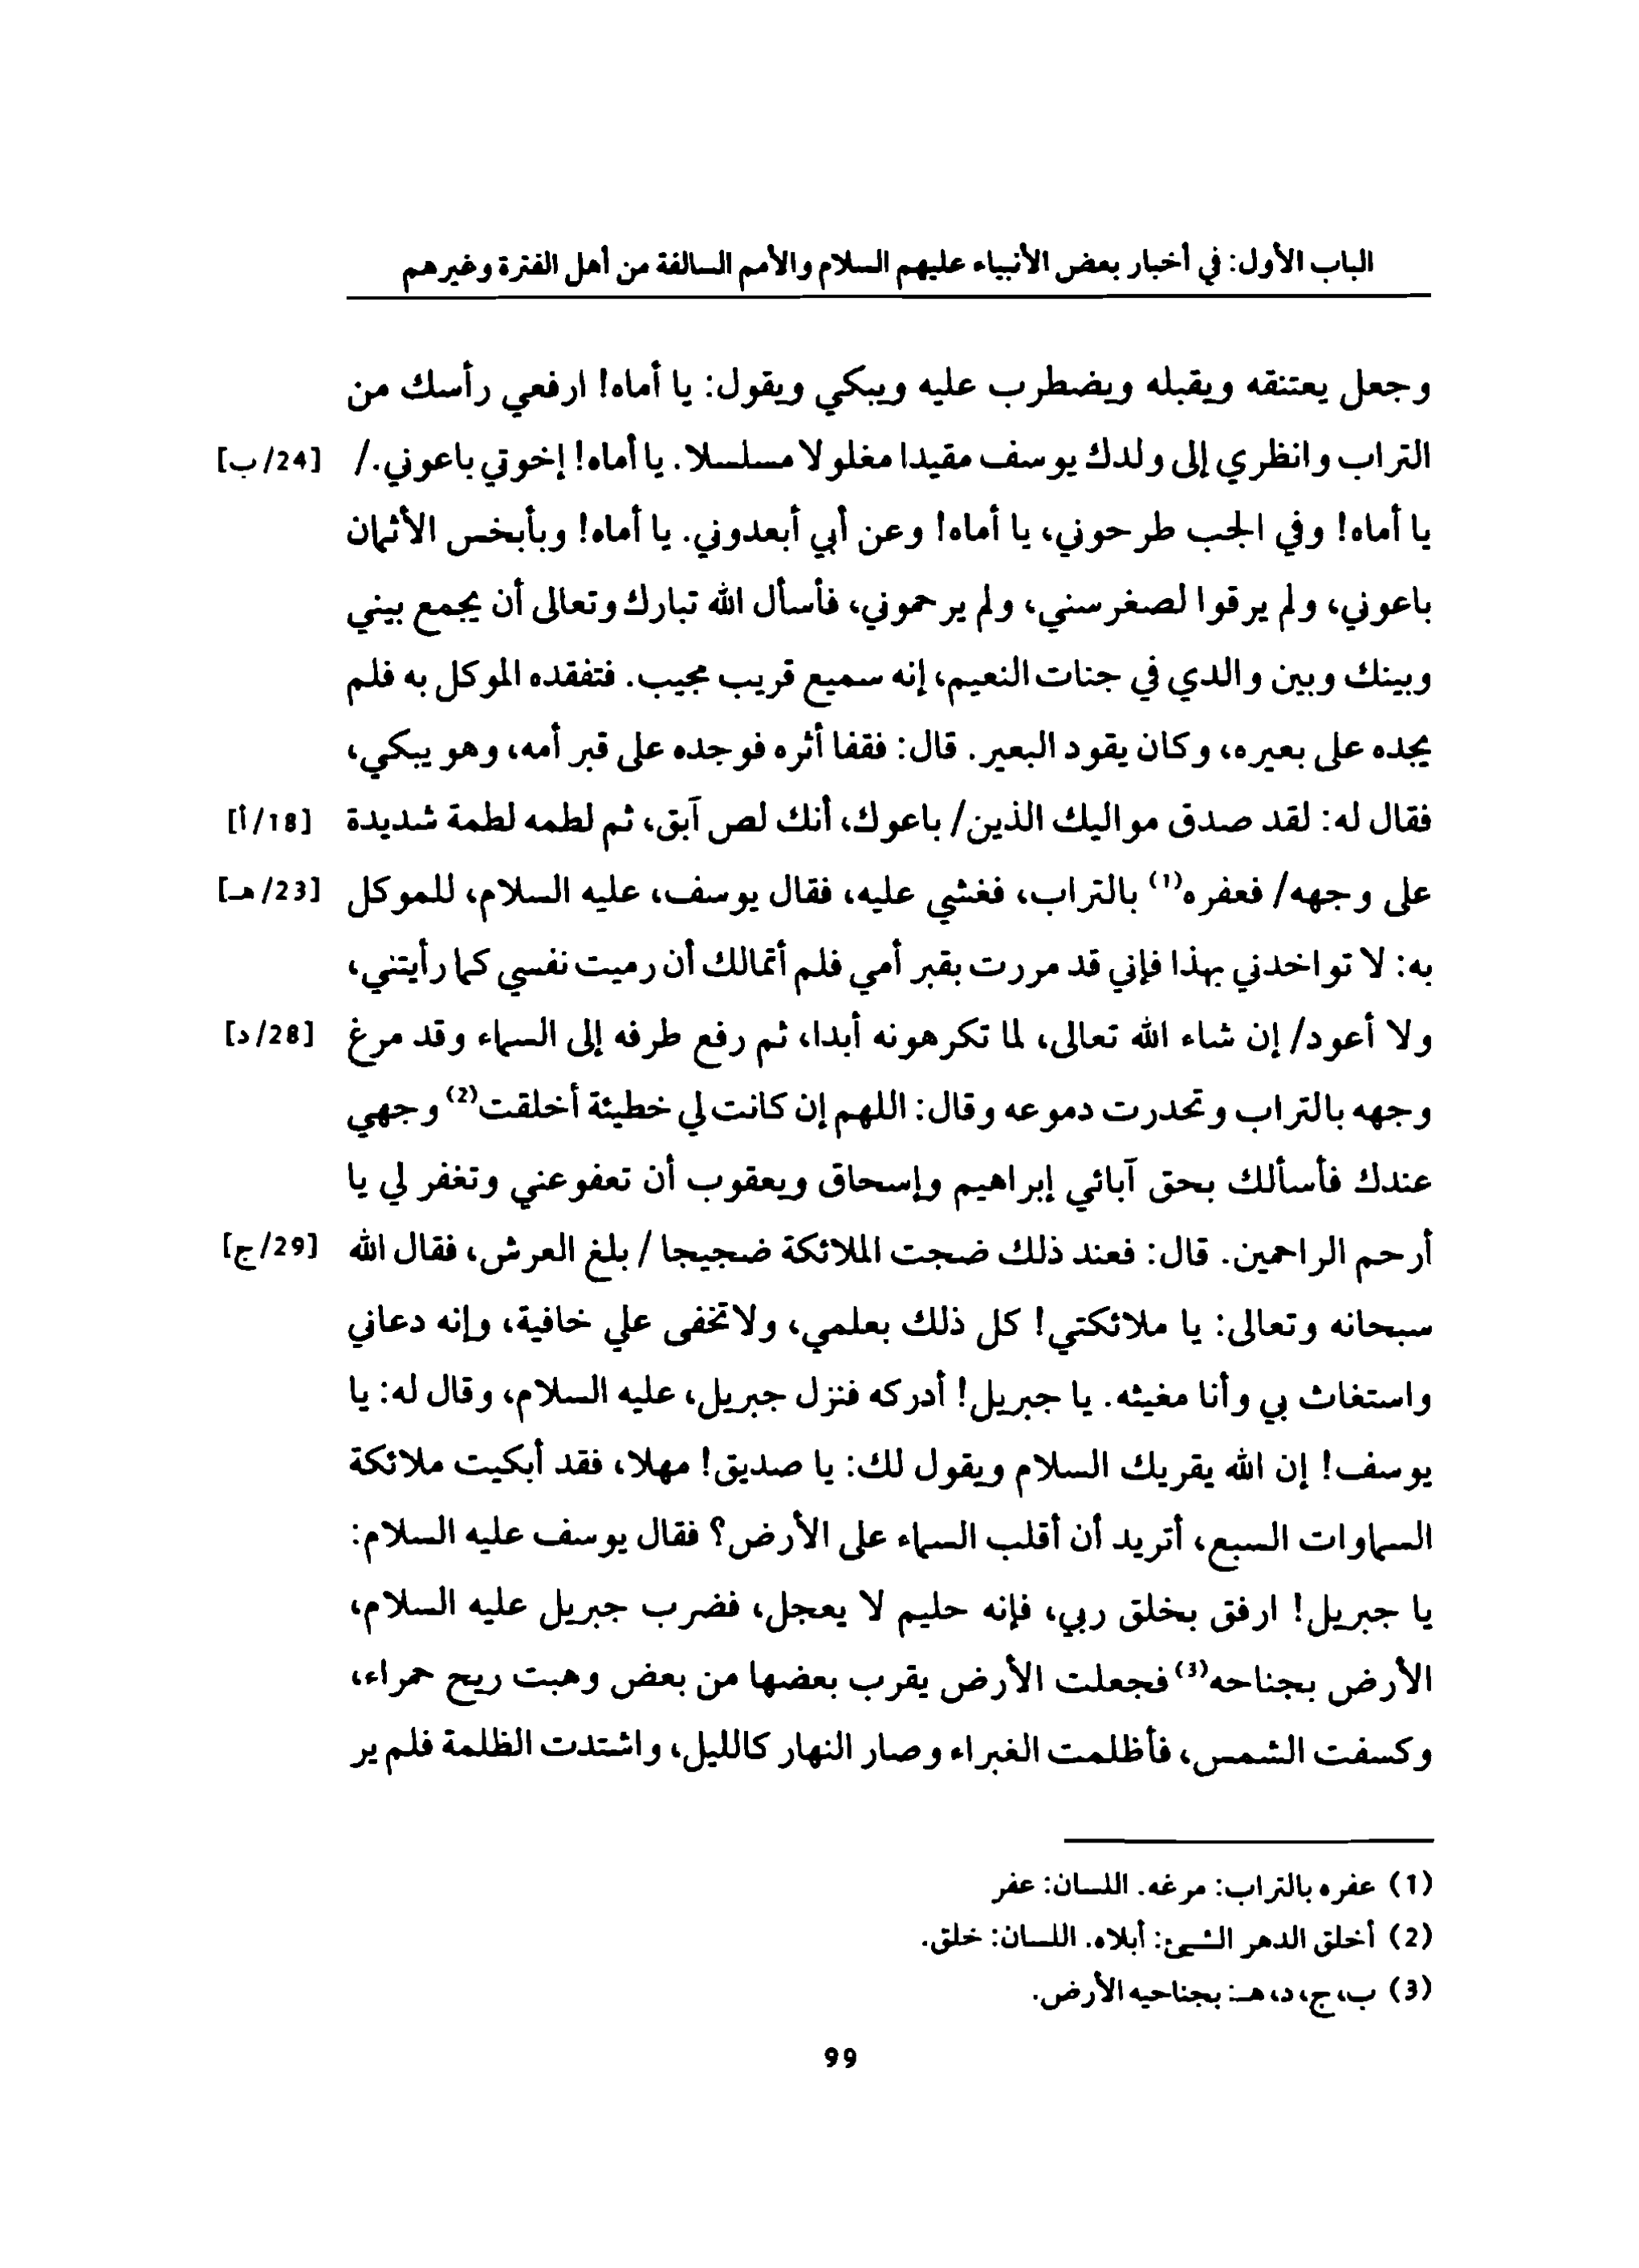 الباب الأول: في أخبار بعض الأنبياء عليهم السلام والأمم السالفة من أهل الفترة وغيرهم
وجعل يعتنقه ويقبله ويضطرب عليه ويبكي ويقول: يا أماه! ارفعي رأسك من
التراب وانظري إلى ولدك يوسف مقيدا مغلولا مسلسلا. يا أماه! إخوتي باعوني./ [24/ب]
يا أماه! وفي الجب طرحوني، يا أماه! وعن أبي أبعدوني. يا أماه! وبأبخس الأثمان
باعوني، ولم يرقوا لصغر سني، ولم يرحموني، فأسأل الله تبارك وتعالى أن يجمع بيني
وبينك وبين والدي في جنات النعيم، إنه سميع قريب مجيب. فتفقده الموكل به فلم
يجده على بعيره، وكان يقود البعير. قال: فقفا أثره فوجده على قبر أمه، وهو يبكي،
فقال له: لقد صدق مواليك الذين/ باعوك، أنك لص آبق، ثم لطمه لطمة شديدة [18/أ]
على وجهه/ فعفره(1) بالتراب، فغشي عليه، فقال يوسف، عليه السلام، للموكل [23/هـ]
به: لا تواخدني بهذا فإني قد مررت بقبر أمي فلم أتمالك أن رميت نفسي كما رأيتني،
ولا أعود/ إن شاء الله تعالى، لما تكرهونه أبدا، ثم رفع طرفه إلى السماء وقد مرغ [28/د]
وجهه بالتراب وتحدرت دموعه وقال: اللهم إن كانت لي خطيئة أخلقت(2) وجهي
عندك فأسألك بحق آبائي إبراهيم وإسحاق ويعقوب أن تعفو عني وتغفر لي يا
أرحم الراحمين. قال: فعند ذلك ضجت الملائكة ضجيجا / بلغ العرش، فقال الله [29/ج]
سبحانه وتعالى: يا ملائكتي! كل ذلك بعلمي، ولا تخفى علي خافية، وإنه دعاني
واستغاث بي وأنا مغيثه. يا جبريل! أدركه فنزل جبريل، عليه السلام، وقال له: يا
يوسف! إن الله يقريك السلام ويقول لك: يا صديق! مهلا، فقد أبكيت ملائكة
السماوات السبع، أتريد أن أقلب السماء على الأرض؟ فقال يوسف عليه السلام:
يا جبريل! ارفق بخلق ربي، فإنه حليم لا يعجل، فضرب جبريل عليه السلام،
الأرض بجناحه(3) فجعلت الأرض يقرب بعضها من بعض وهبت ريح حمراء،
وكسفت الشمس، فأظلمت الغبراء وصار النهار كالليل، واشتدت الظلمة فلم ير
(1) عفره بالتراب: مرغه. اللسان: عفر
(2) أخلق الدهر الشيئ: أبلاه. اللسان: خلق.
(3) ب، ج، د، هـ: بجناحيه الأرض.
99